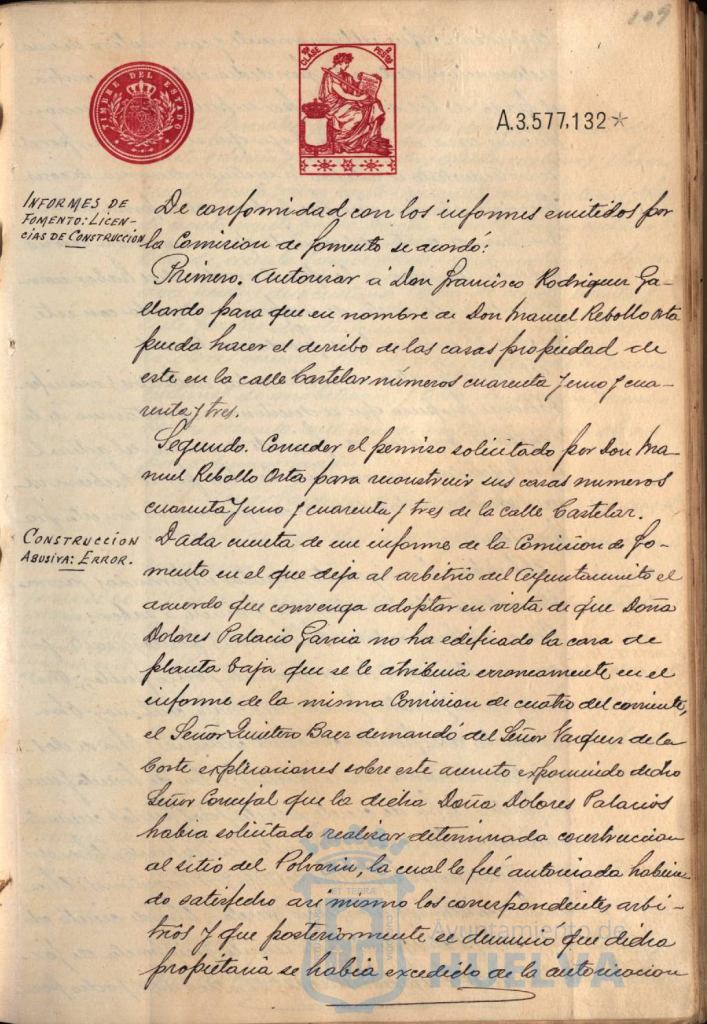 109
TIMBRE DEL ESTADO
CLASE 8ª
PESETAS
A.3.577,132*
INFORMES DE
FOMENTO: LICEN-
CIAS DE CONSTRUCCION
De conformidad con los informes emitidos por
la Comision de fomento se acordó:
Primero. Autorizar á Don Francisco Rodriguez Ga-
llardo para que en nombre de Don Manuel Rebollo Orta
pueda hacer el derribo de las casas propiedad de
este en la calle Castelar números cuarenta y uno y cua-
renta y tres.
Segundo. Conceder el permiso solicitado por Don Ma-
nuel Rebollo Orta para reconstruir sus casas numeros
cuarenta y uno y cuarenta y tres de la calle Castelar.
CONSTRUCCION
ABUSIVA: ERROR.
Dada cuenta de un informe de la Comision de fo-
mento en el que deja al arbitrio del Ayuntamiento el
acuerdo que convenga adoptar en vista de que Doña
Dolores Palacio Garcia no ha edificado la casa de
planta baja que se le atribuia erroneamente en el
informe de la misma Comision de cuatro del corriente,
el Señor Quintero Baez demandó del Señor Vazquez de la
Corte explicaciones sobre este asunto exponiendo dicho
Señor Concejal que la dicha Doña Dolores Palacios
habia solicitado realizar determinada construccion
al sitio del Polvorin, la cual le fué autorizada habien-
do satisfecho asi mismo los correspondientes arbi-
trios y que posteriormente se denunció que dicha
propietaria se habia excedido de la autorizacion
Ayuntamiento de
HUELVA